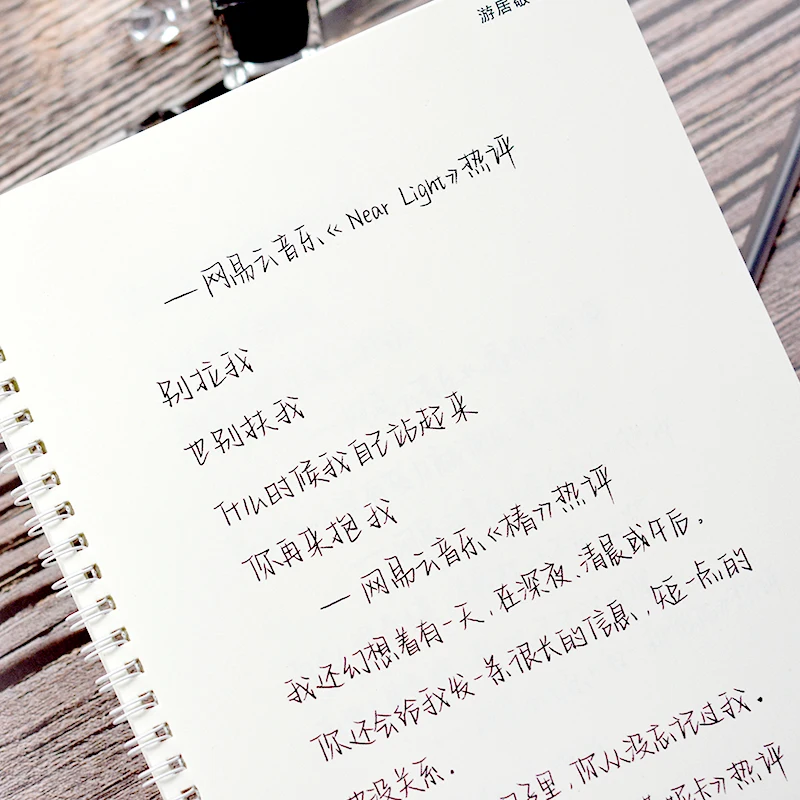 游居敬
——网易云音乐《Near Light》热评
别拉我
也别扶我
什么时候我自己站起来
你再来抱我
——网易云音乐《椿》热评
我还幻想着有一天,在深夜、清晨或午后,
你还会给我发一条很长的信息,短一点的
也没关系。
里,你从没忘记过我。
卡》热评